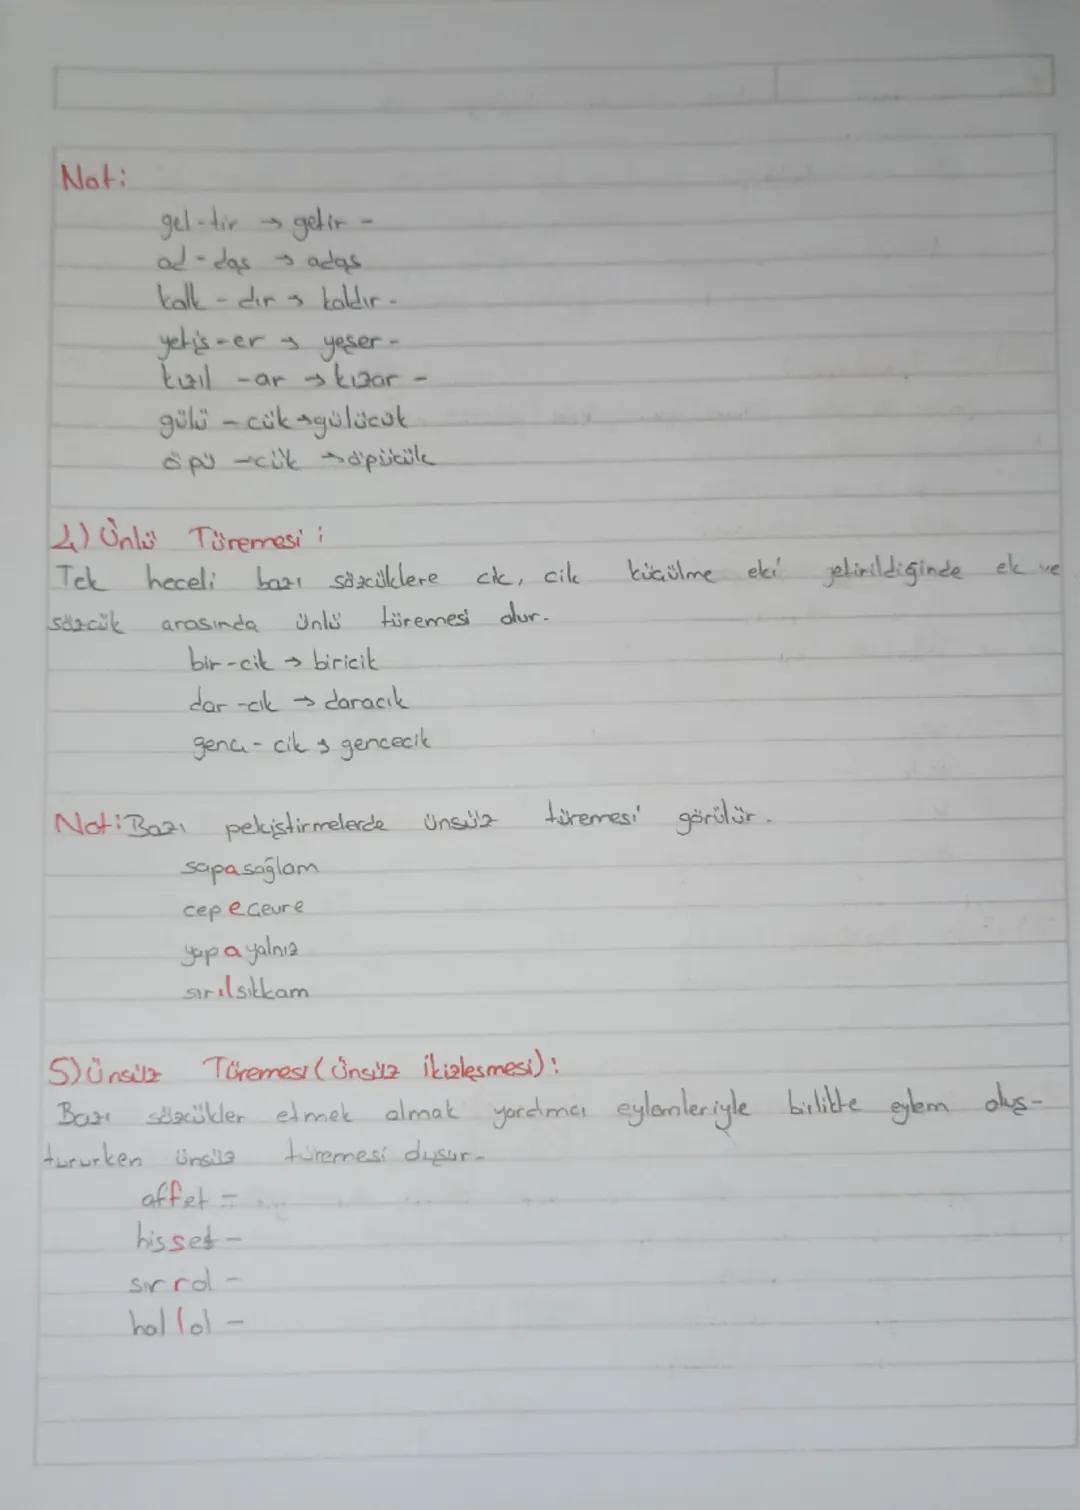 Not:
gel-tir → getir -
ad - daş → adaş
kalk - dır → kaldır -
yeşil-er → yeşer -
kızıl -ar → kızar -
gülü - cük → gülücük
öpü -cük → öpücük
4) Ünlü Türemesi :
Tek heceli bazı sözcüklere cık, cik küçülme eki getirildiğinde ek ve
sözcük arasında ünlü türemesi olur.
bir-cik → biricik
dar -cık → daracık
genç - cik → gencecik
Not: Bazı pekiştirmelerde ünsüz türemesi görülür.
sapasağlam
cepeçevre
yapayalnız
sırılsıkkam
5) Ünsüz Türemesi (ünsüz ikizleşmesi):
Bazı sözcükler etmek olmak yardımcı eylemleriyle birlikte eylem oluş-
tururken ünsüz türemesi oluşur.
affet -
hisset -
sırrol -
hallol -